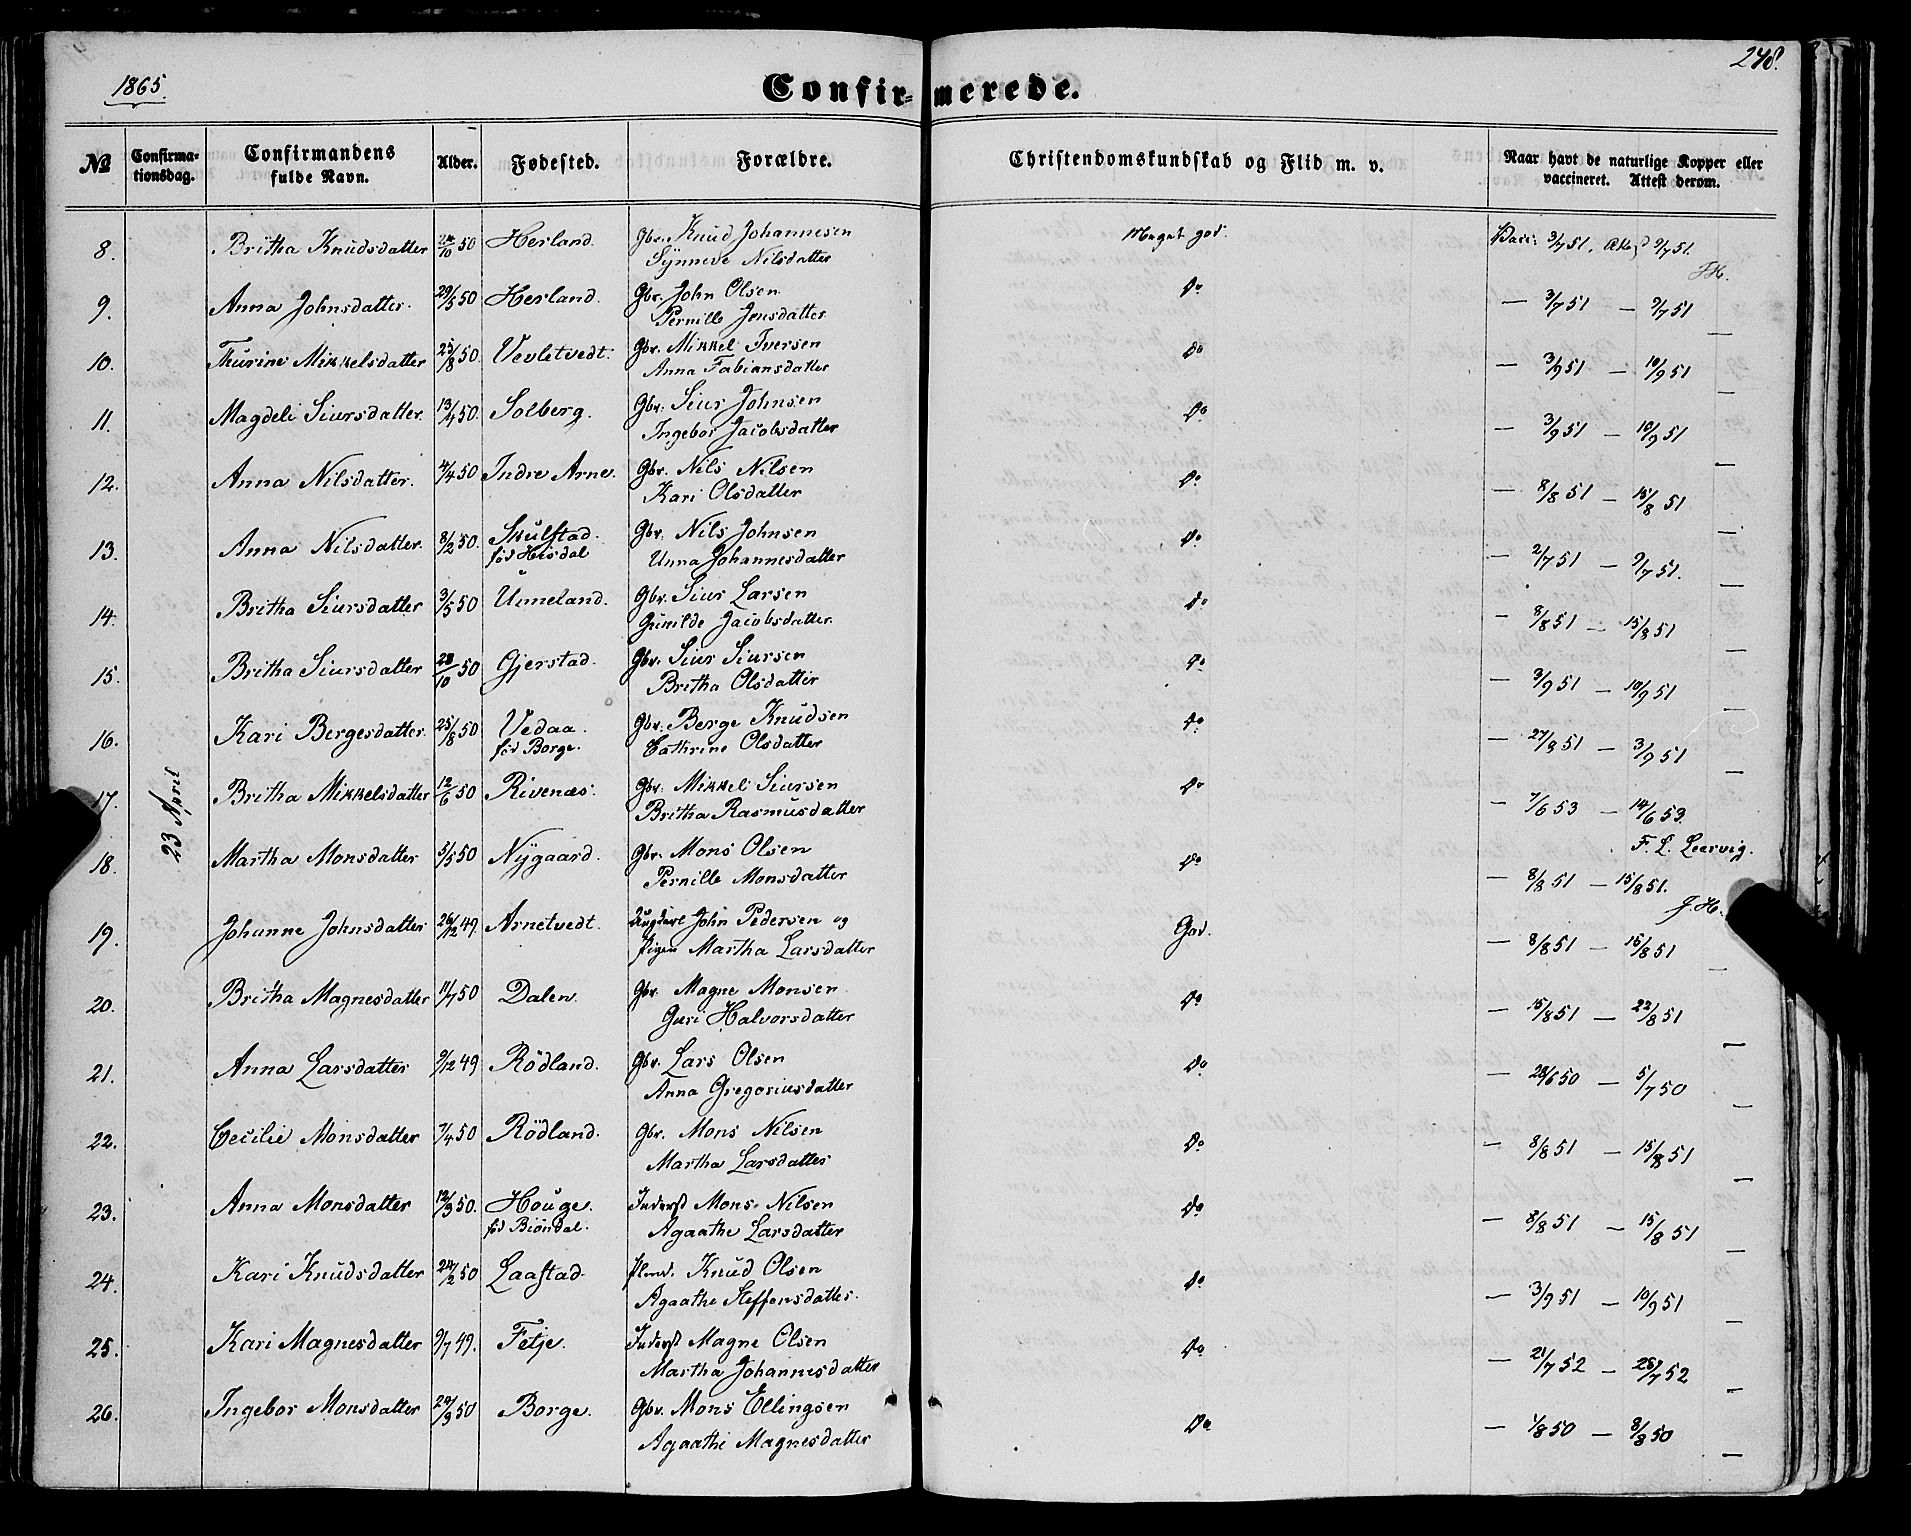 1865.
248.
Confirmerede.
№ Confirmationsdag. Confirmandens fulde Navn. Alder. Fødested. Forældre. Christendomskundskab og Flid m. v. Naar havt de naturlige Kopper eller vaccineret. Attest derom.
23 April
8. Britha Knudsdatter 24/10 50 Herland. Gbr. Knud Johannesen Meget god. Vacc: 3/7 51, 9/7 51.
Synneve Nilsdatter
9. Anna Johnsdatter. 29/5 50 Herland. Gbr. John Olsen Do — 3/7 51 — 9/7 51 —
Pernille Jensdatter
10. Thurine Mikkelsdatter 25/8 50. Vevletvedt. Gbr. Mikkel Iversen Do — 3/9 51 — 10/9 51 —
Anna Fabiansdatter
11. Magdeli Siursdatter. 13/4 50. Solberg. Gbr. Siur Johnsen Do — 3/9 51 — 10/9 51 —
Ingebor Jacobsdatter
12. Anna Nilsdatter. 4/4 50 Indre Arne. Gbr. Nils Nilsen Do — 8/8 51 — 15/8 51 —
Kari Olsdatter
13. Anna Nilsdatter. 8/2 50. Skulstad. Gbr. Nils Johnsen Do — 2/7 51 — 9/7 51. —
fød Hisdal Unna Johannesdatter
14. Britha Siursdatter 3/5 50 Unneland. Gbr. Siur Larsen Do — 8/8 51 — 15/8 51 —
Gunilde Jacobsdatter.
15. Britha Siursdatter 28/10 50 Gjerstad. Gbr. Siur Siursen Do — 3/9 51 — 10/9 51 —
Britha Olsdatter
16. Kari Bergesdatter. 25/8 50 Vedaa. Gbr. Berge Knudsen Do — 27/8 51 — 3/9 51 —
fød Borge. Cathrine Olsdatter
17. Britha Mikkelsdatter 12/6 50 Rivenæs. Gbr. Mikkel Siursen Do — 7/6 53 — 14/6 53.
Britha Rasmusdatter F. L. Leervig.
18. Martha Monsdatter 5/5 50 Nygaard. Gbr. Mons Olsen Do — 8/8 51 — 15/8 51.
Pernille Monsdatter J. H.
19. Johanne Johnsdatter 26/12 49 Arnetvedt. Ungkarl John Pedersen og God. — 8/8 51 — 15/8 51 —
Pigen Martha Larsdatter
20. Britha Magnesdatter 11/7 50 Dalen. Gbr. Magne Monsen Do — 15/8 51 — 22/8 51 —
Guri Halvorsdatter
21. Anna Larsdatter 9/12 49 Rödland. Gbr. Lars Olsen Do — 28/6 50 — 5/7 50 —
Anna Gregoriusdatter
22. Cecilie Monsdatter 7/4 50 Rödland. Gbr. Mons Nilsen Do — 8/8 51 — 15/8 51 —
Martha Larsdatter
23. Anna Monsdatter 12/9 50. Houge. Inderst Mons Nilsen Do — 8/8 51 — 15/8 51 —
fød Biöndal. Agaathe Larsdatter
24. Kari Knudsdatter 24/2 50 Laastad. Knud Olsen Do — 3/9 51 — 10/9 51 —
Agaathe Steffensdatter.
25. Kari Magnesdatter 9/7 49. Fetje. Inderst Magne Olsen Do — 21/7 52 — 28/7 52 —
Martha Johannesdatter
26. Ingebor Monsdatter 20/9 50 Borge. Gbr. Mons Ellingsen Do — 1/8 50 — 8/8 50 —
Agaathe Magnesdatter